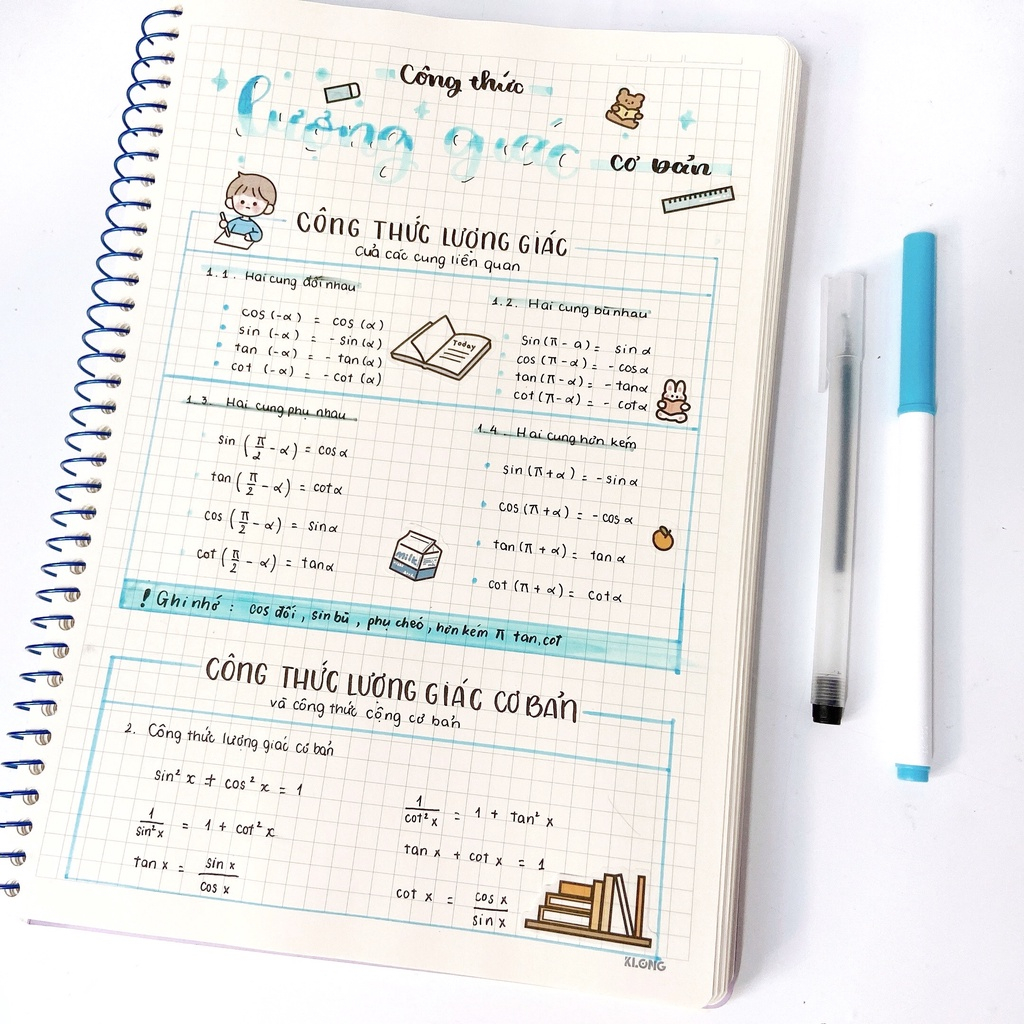 Công thức
lượng giác
cơ bản
CÔNG THỨC LƯỢNG GIÁC
của các cung liên quan
1.1. Hai cung đối nhau
cos (-α) = cos (α)
sin (-α) = - sin (α)
tan (-α) = - tan (α)
cot (-α) = - cot (α)
Today
1.2. Hai cung bù nhau
Sin (π - a) = sin α
cos (π - α) = - cos α
tan (π - α) = - tan α
cot (π - α) = - cot α
1.3. Hai cung phụ nhau
sin (π/2 - α) = cos α
tan (π/2 - α) = cot α
cos (π/2 - α) = sin α
cot (π/2 - α) = tan α
milk
1.4. Hai cung hơn kém
sin (π + α) = - sin α
cos (π + α) = - cos α
tan (π + α) = tan α
cot (π + α) = cot α
! Ghi nhớ : cos đối, sin bù, phụ chéo, hơn kém π tan, cot
CÔNG THỨC LƯỢNG GIÁC CƠ BẢN
và công thức cộng cơ bản
2. Công thức lượng giác cơ bản
sin² x + cos² x = 1
1/sin² x = 1 + cot² x
tan x = sin x / cos x
1/cot² x = 1 + tan² x
tan x + cot x = 1
cot x = cos x / sin x
KLONG